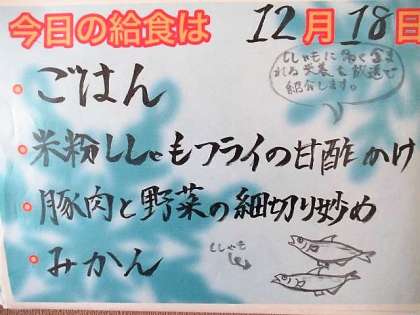 今日の給食は 12月18日
ししゃもに多く含ま
れる栄養を放送で
紹介します。
・ごはん
・米粉ししゃもフライの甘酢かけ
・豚肉と野菜の細切り炒め
・みかん
ししゃも